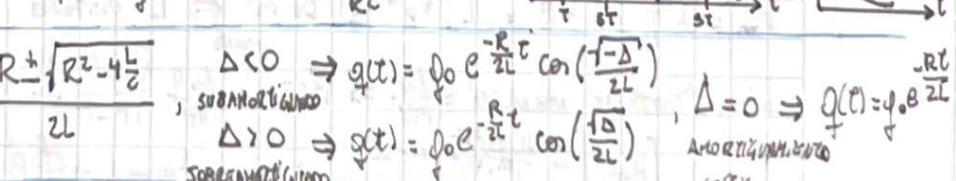 RC
τ 2τ 3τ t
t
R ± √(R² - 4 L/C) / 2L , Δ < 0 ⇒ q(t) = q₀ e^(-R/2L t) cos(√-Δ / 2L)
SUBAMORTIGUADO
Δ > 0 ⇒ q(t) = q₀ e^(-R/2L t) cos(√Δ / 2L)
SOBREAMORTIGUADO
, Δ = 0 ⇒ q(t) = q₀ e^(-Rt/2L)
AMORTIGUAMIENTO